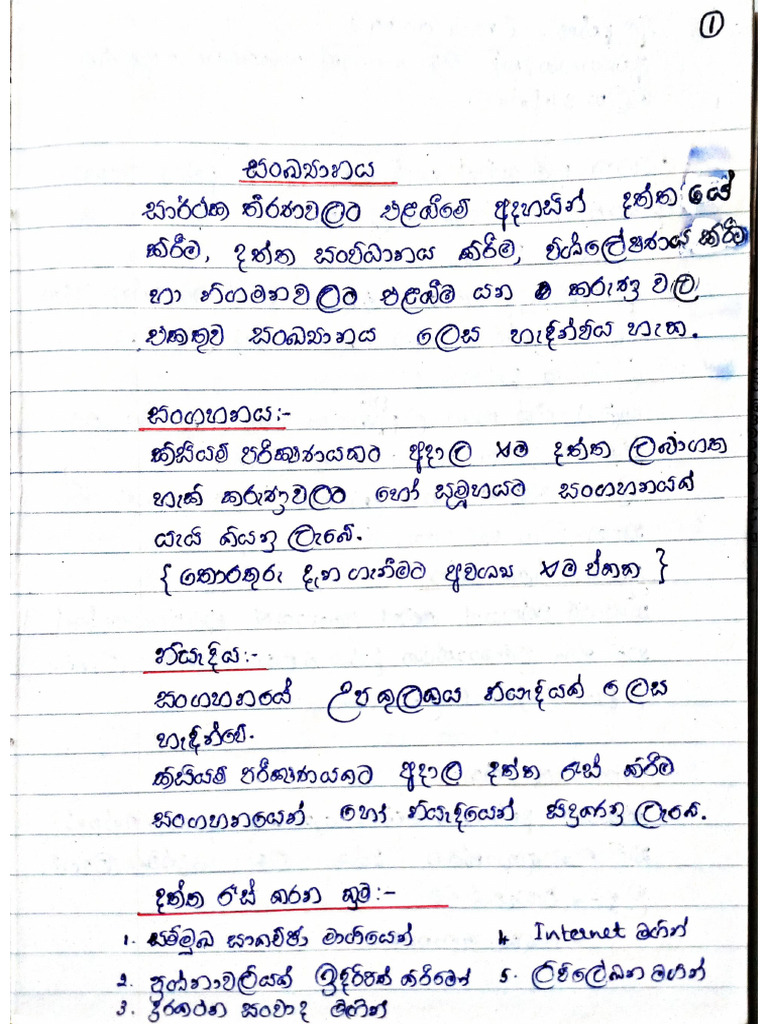 1
සංඛ්‍යානය
සාර්ථක තීරණවලට එළඹීමේ අදහසින් දත්ත
කිරීම, දත්ත සංවිධානය කිරීම, විශ්ලේෂණය කිරීම
හා නිගමනවලට එළඹීම යන කරුණු වල
එකතුව සංඛ්‍යානය ලෙස හැඳින්විය හැක.
සංගහනය:-
කිසියම් පරීක්ෂණයකට අදාල සම දත්ත ලබාගත
හැකි කරුණුවලට හෝ සමූහයට සංගහනයක්
යැයි කියනු ලැබේ.
{ තොරතුරු දැන ගැනීමට අවශ්‍ය සම ඒකක }
නියැදිය:-
සංගහනයේ උප කුලකය නියැදියක් ලෙස
හැඳින්වේ.
කිසියම් පරීක්ෂණයකට අදාල දත්ත රැස් කිරීම
සංගහනයෙන් හෝ නියැදියෙන් සිදුකෙනු ලැබේ.
දත්ත රැස් කරන ක්‍රම:-
1. සම්මුඛ සාකච්ඡා මාර්ගයෙන් 4. Internet මගින්
2. ප්‍රශ්නාවලියක් ඉදිරිපත් කිරීමෙන් 5. ලිපිලේඛන මගින්
3. දුරකථන සංවාද මගින්